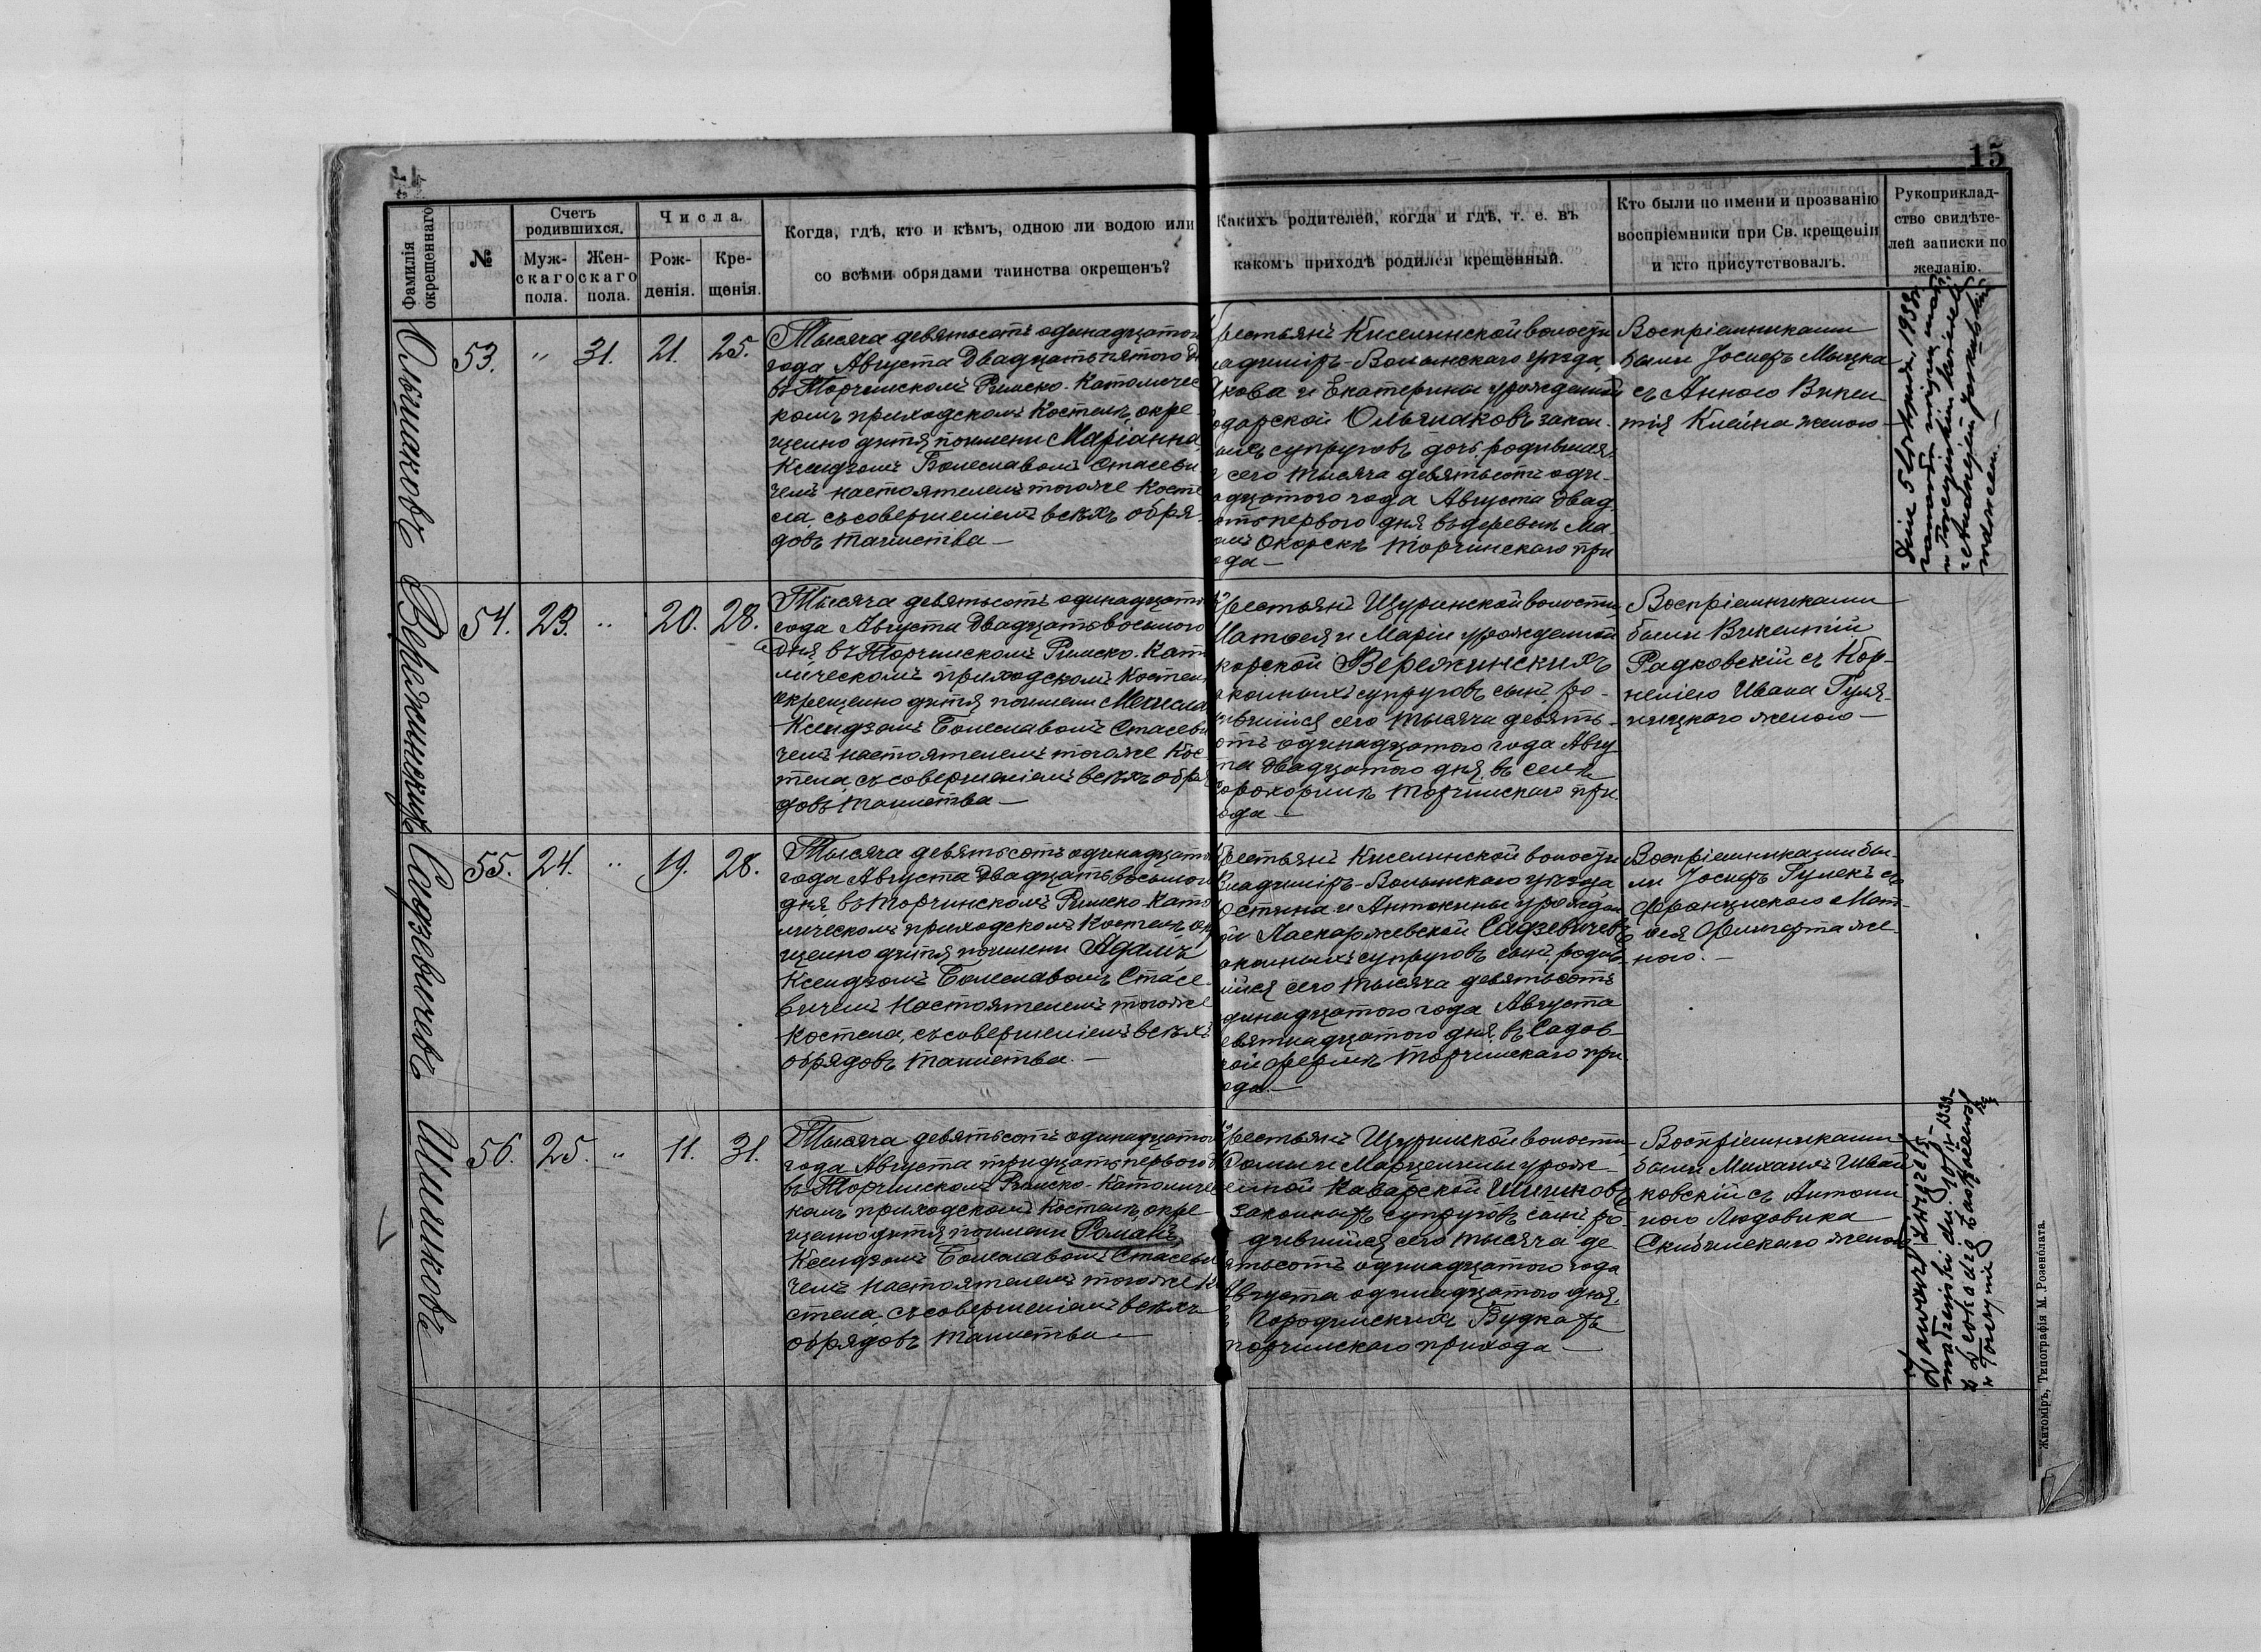 15
Фамилія окрещеннаго
№
Счетъ родившихся.
Муж-скаго пола.
Жен-скаго пола.
Числа.
Рож-денія.
Кре-щенія.
Когда, гдѣ, кто и кѣмъ, одною ли водою или
со всѣми обрядами таинства окрещенъ?
Какихъ родителей, когда и гдѣ, т. е. въ
какомъ приходѣ родился крещенный.
Кто были по имени и прозванію
воспріемники при Св. крещеніи
и кто присутствовалъ.
Рукоприклад-
ство свидѣте-
лей записки по
желанію.
Ольшаковъ
53. " 31. 21. 25.
Тысяча девятьсотъ одинадцатого
года Августа двадцать пятого
въ Торчинскомъ Римско-Католичес
комъ приходскомъ Костелѣ окре-
щено дитя поимени Маріанна
Ксендзомъ Болеславомъ Стасеви
чемъ настоятелемъ тогоже Косте
ла, съ совершеніемъ всѣхъ обря-
довъ таинства —
рестьянъ Киселинской волости
ладиміръ-Волынскаго уѣзда,
Якова и Екатерины урожденной
Ольшаковъ закон-
ныхъ супруговъ дочь, родившаяся
сего тысяча девятьсотъ оди-
адцатого года Августа двад-
ать первого дня въ деревнѣ Ма-
омъ Окорскѣ Торчинскаго при
ода —
Воспріемниками
были Іосифъ Мыцка
съ Анною Викен-
тія Клейна женою —
Вережинскихъ
54. 23. " 20. 28.
Тысяча девятьсотъ одинадцато
года Августа двадцать восьмого
дня въ Торчинскомъ Римско-Като
лическомъ приходскомъ Костелѣ
окрещено дитя поимени Мечисла
Ксендзомъ Болеславомъ Стасеви
чемъ настоятелемъ тогоже Кос
тела, съ совершеніемъ всѣхъ обря
довъ таинства —
рестьянъ Щуринской волости
Матвея и Маріи урожденной
корской Вережинскихъ
аконныхъ супруговъ сынъ, ро-
ившійся сего тысяча девять-
отъ одинадцатого года Авгу
та двадцатого дня, въ селѣ
Торчинскаго при
ода —
Воспріемниками
были Викентій
Радковскій съ Кор-
неліею Ивана Гуля-
ницкаго женою —
Садзевичевъ
55. 24. " 19. 28.
Тысяча девятьсотъ одинадцато
года Августа двадцать восьмого
дня, въ Торчинскомъ Римско-Като
лическомъ приходскомъ Костелѣ окр
щено дитя поимени Адамъ
Ксендзомъ Болеславомъ Стасе-
вичемъ Настоятелемъ тогоже
Костела, съ совершеніемъ всѣхъ
обрядовъ таинства. —
рестьянъ Киселинской волости
Владиміръ-Волынскаго уѣзда
стина и Антонины урожден
ой Паскаржевской Садзевичевъ
аконныхъ супруговъ сынъ, родив
ійся сего тысяча девятьсотъ
динадцатого года Августа
евятнадцатого дня, въ Садов-
кой фермѣ Торчинскаго при
ода. —
Воспріемниками бы-
ли Іосифъ Гулекъ съ
Францискою Мат-
вея же-
ною. —
Шишковъ
56. 25. " 11. 31.
Тысяча девятьсотъ одинадцатого
года Августа тридцать первого
въ Торчинскомъ Римско-Католичес
комъ приходскомъ Костелѣ окре
щено дитя поимени Романъ
Ксендзомъ Болеславомъ Стасеви
чемъ настоятелемъ тогоже Ко
стела, съ совершеніемъ всѣхъ
обрядовъ таинства —
рестьянъ Щуринской волости
Марцелины урож-
енной Каварской Шишковъ
законныхъ супруговъ сынъ ро-
дившійся сего тысяча де-
ятьсотъ одинадцатого года
Августа одинадцатого дня,
Городинскихъ Будкахъ
торчинскаго прихода —
Воспріемниками
были Михаилъ Ивай
ковскій съ Антони
ною Людовика
Скибинскаго женою
Житоміръ, Типографія М. Розенблата.